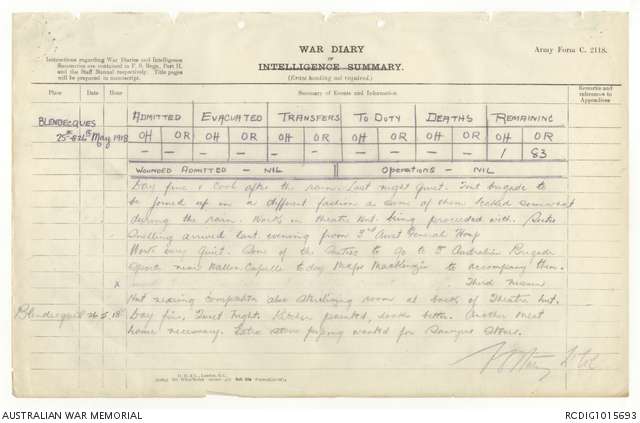 WAR DIARY
OF
INTELLIGENCE SUMMARY.
(Erase heading not required.)
Army Form C. 2118.
Instructions regarding War Diaries and Intelligence
Summaries are contained in F. S. Regs., Part II.
and the Staff Manual respectively. Title pages
will be prepared in manuscript.
Place Date Hour Summary of Events and Information Remarks and
references to
Appendices
BLENDECQUES
25th & 26th May 1918
ADMITTED EVACUATED TRANSFERS TO DUTY DEATHS REMAINING
OH OR OH OR OH OR OH OR OH OR OH OR
– – – – – – – – – – 1 83
WOUNDED ADMITTED – NIL OPERATIONS – NIL
Day fine & cool after the rain. Last night quiet. Tent brigade to
be joined up in a different fashion as some of them leaked somewhat
during the rain. Work in theatre hut being proceeded with. Sister
Snelling arrived last evening from 3rd Aust General Hosp
Work very quiet. Some of the Sisters to go to 5th Australian Brigade
Sports near Wallon-Capelle today Major MacKenzie to accompany them.
Third
Hut nearing completion also sterilising room at back of Theatre hut.
Blendecques 26.5.18 Day fine, Quiet night. Kitchen painted, looks better. Another meat
house necessary. Extra stove piping wanted for Sawyer Stove.
Lt Col
AUSTRALIAN WAR MEMORIAL
RCDIG1015693